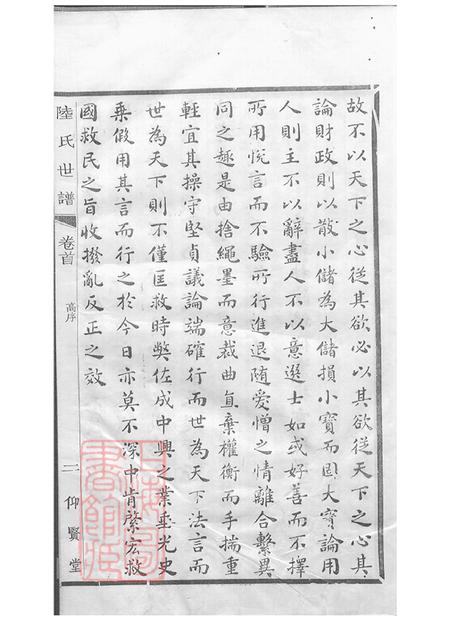 故不以天下之心從其欲必以其欲從天下之心其
論財政則以散小儲為大儲損小寶而固大寶論用
人則主不以辭盡人不以意選士如或好善而不擇
所用悅言而不驗所行進退隨爱憎之情離合繫異
同之趣是由捨繩墨而意裁曲直棄權衡而手揣重
輕宜其操守堅貞議論端確行而世為天下法言而
世為天下則不僅匡救時弊佐成中興之業垂光史
乘假用其言而行之於今日亦莫不深中肯綮宏救
國救民之旨收撥亂反正之效
陸氏世譜
卷首
高序
二
仰賢堂